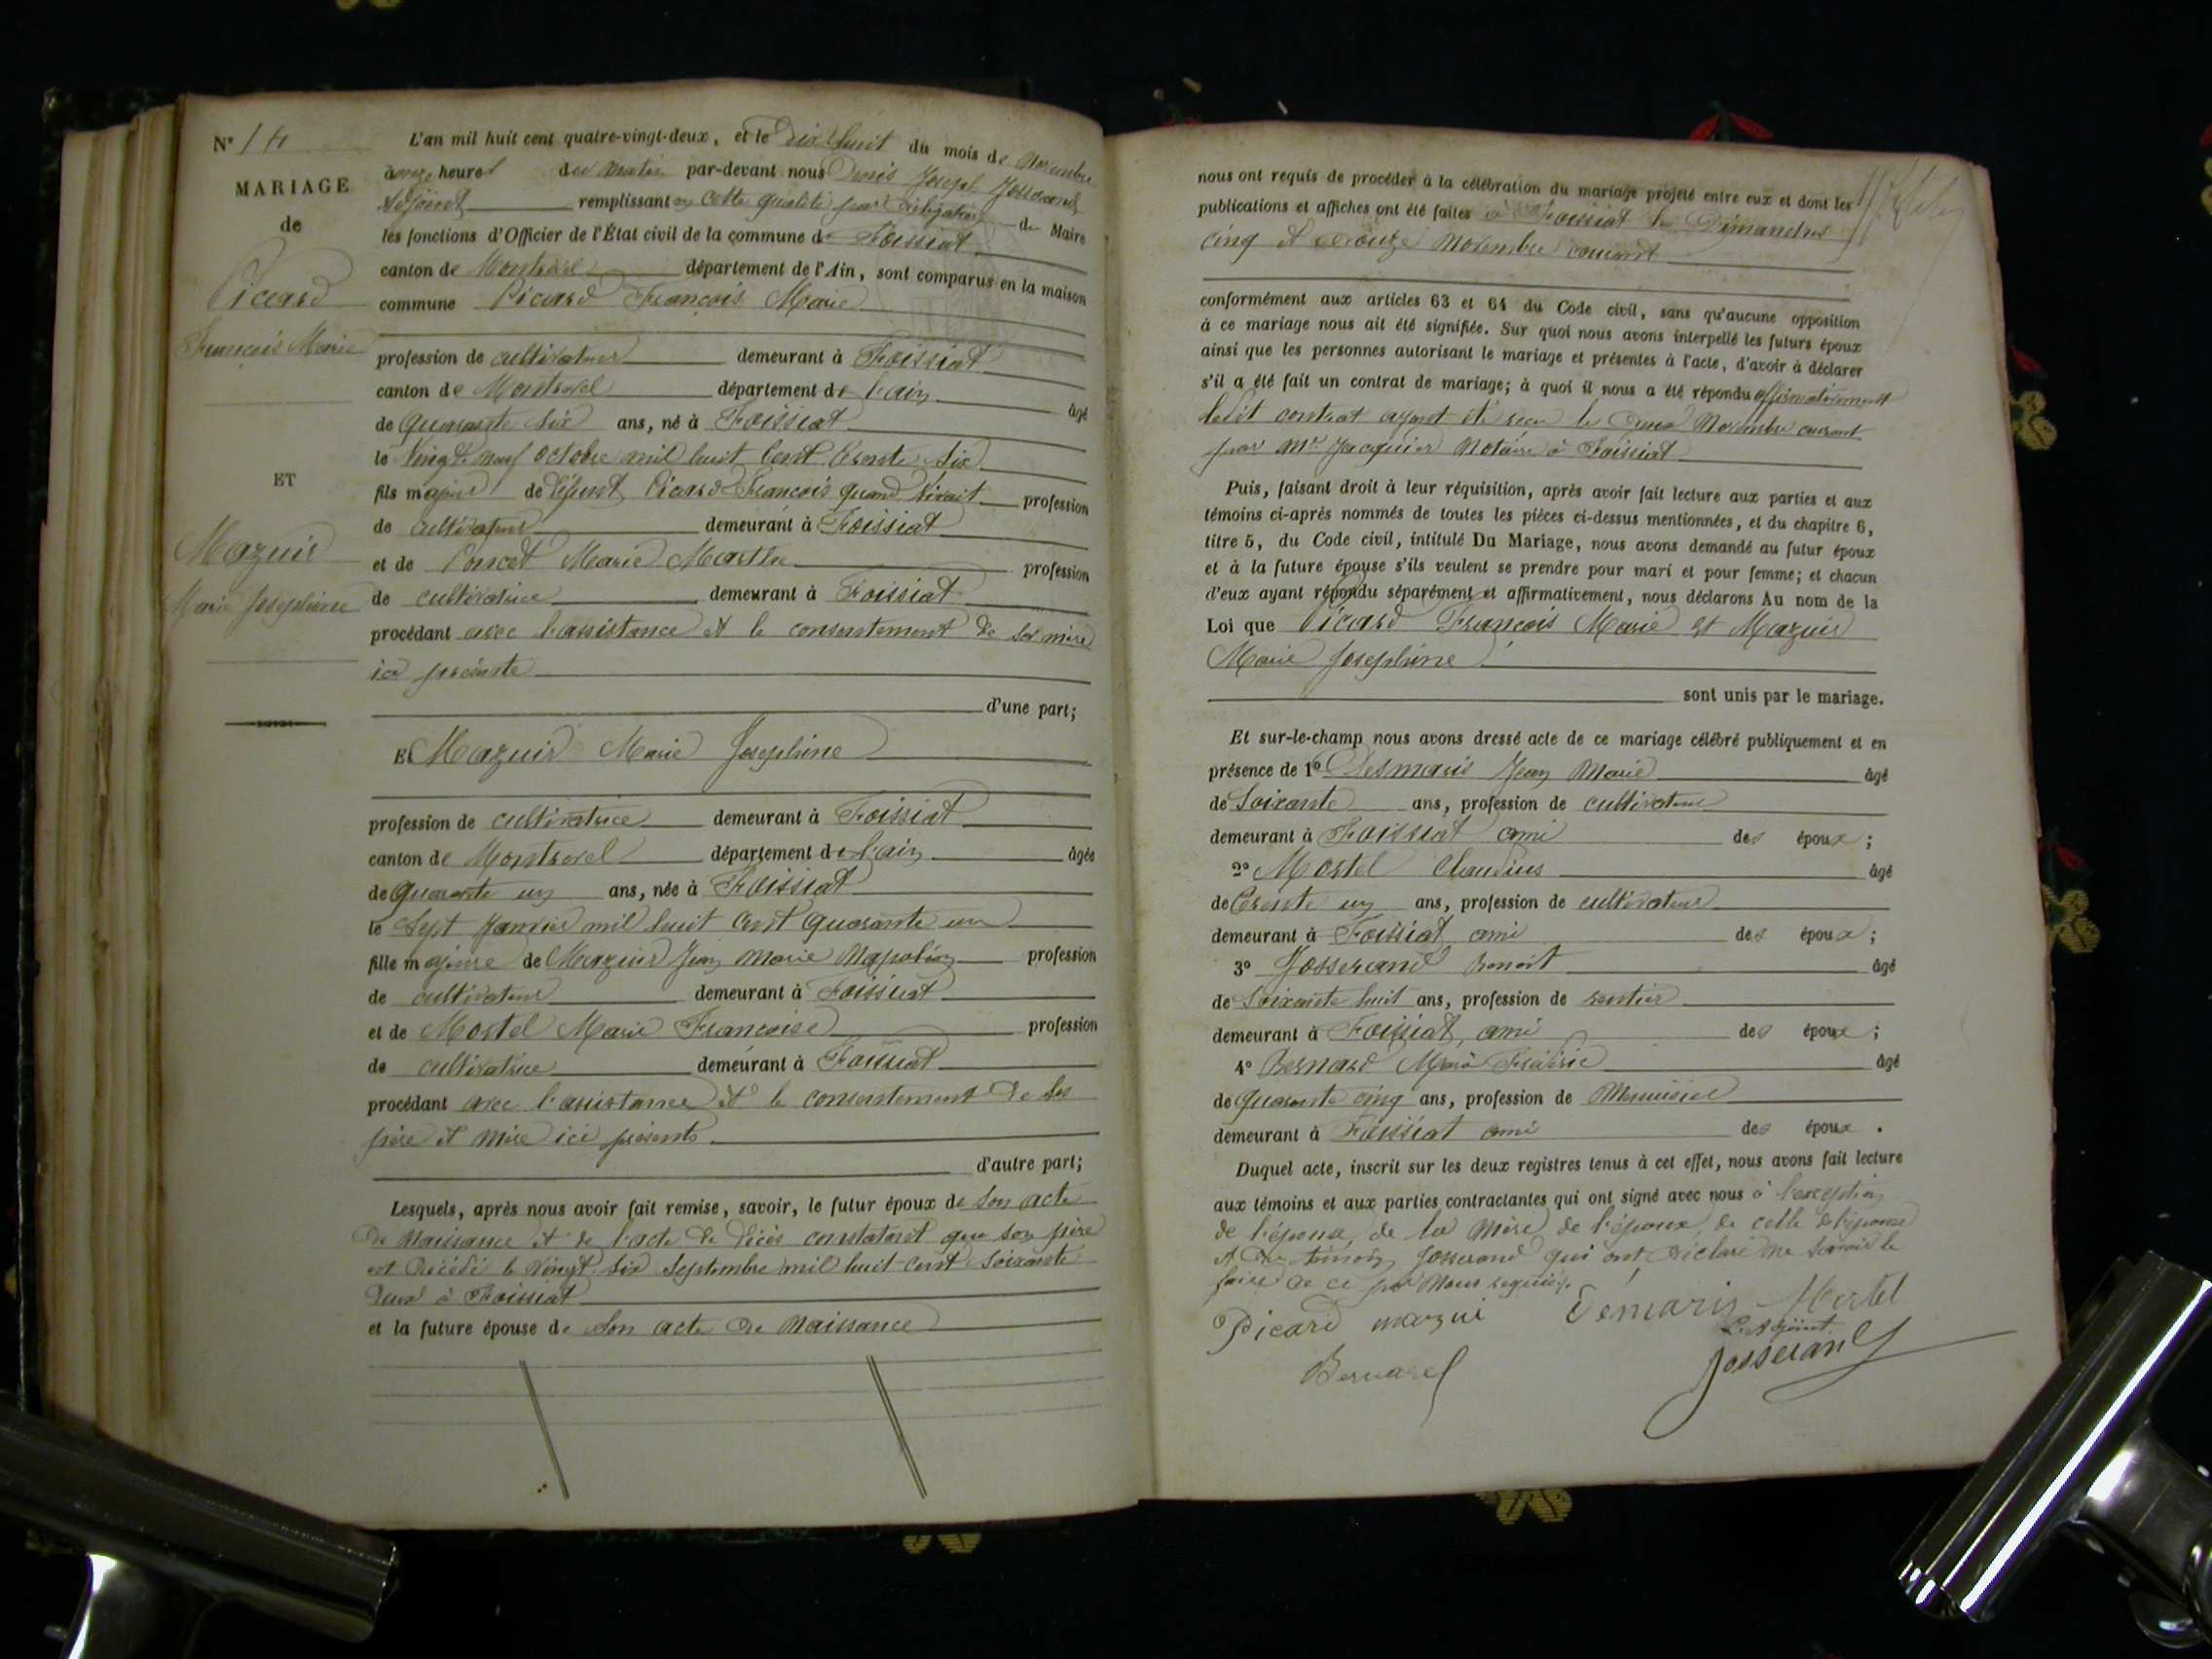 N° 14
MARIAGE
de
Picard
François Marie
ET
Mazuir
Marie Joséphine
L'an mil huit cent quatre-vingt-deux, et le Dix huit du mois de Novembre
à onze heures du Matin par-devant nous Denis Joseph Josserand
adjoint remplissant en cette qualité par délégation du Maire
les fonctions d'Officier de l'État civil de la commune de Foissiat
canton de Montrevel département de l'Ain, sont comparus en la maison
commune Picard François Marie
profession de cultivateur demeurant à Foissiat
canton de Montrevel département de l'ain âgé
de quarante six ans, né à Foissiat
le Vingt neuf octobre mil huit cent trente six
fils majeur de défunt Picard François quand vivait profession
de cultivateur demeurant à Foissiat
et de Poncet Marie Marthe profession
de cultivatrice demeurant à Foissiat
procédant avec l'assistance et le consentement de sa mère
ici présente
d'une part;
Et Mazuir Marie Joséphine
profession de cultivatrice demeurant à Foissiat
canton de Montrevel département de l'ain âgée
de quarante un ans, née à Foissiat
le Sept Janvier mil huit cent quarante un
fille majeure de Mazuir Jean Marie Napoléon profession
de cultivateur demeurant à Foissiat
et de Mortel Marie Françoise profession
de cultivatrice demeurant à Foissiat
procédant avec l'assistance et le consentement de ses
père et mère ici présents
d'autre part;
Lesquels, après nous avoir fait remise, savoir, le futur époux de son acte
de Naissance et de l'acte de décès constatant que son père
est décédé le vingt six Septembre mil huit cent soixante
deux à Foissiat
et la future épouse de son acte de Naissance
nous ont requis de procéder à la célébration du mariage projeté entre eux et dont les
publications et affiches ont été faites à Foissiat les Dimanches
cinq et douze Novembre courant
conformément aux articles 63 et 64 du Code civil, sans qu'aucune opposition
à ce mariage nous ait été signifiée. Sur quoi nous avons interpellé les futurs époux
ainsi que les personnes autorisant le mariage et présentes à l'acte, d'avoir à déclarer
s'il a été fait un contrat de mariage; à quoi il nous a été répondu affirmativement
ledit contrat ayant été recu le Novembre courant
par Me Jacquier Notaire à Foissiat
Puis, faisant droit à leur réquisition, après avoir fait lecture aux parties et aux
témoins ci-après nommés de toutes les pièces ci-dessus mentionnées, et du chapitre 6,
titre 5, du Code civil, intitulé Du Mariage, nous avons demandé au futur époux
et à la future épouse s'ils veulent se prendre pour mari et pour femme; et chacun
d'eux ayant répondu séparément et affirmativement, nous déclarons Au nom de la
Loi que Picard François Marie et Mazuir
Marie Joséphine
sont unis par le mariage.
Et sur-le-champ nous avons dressé acte de ce mariage célébré publiquement et en
présence de 1° Desmaris Jean Marie âgé
de Soixante ans, profession de cultivateur
demeurant à Foissiat ami des époux;
2° Mortel Claudius âgé
de trente un ans, profession de cultivateur
demeurant à Foissiat ami des époux;
3° Josserand Benoit âgé
de soixante huit ans, profession de rentier
demeurant à Foissiat, ami des époux;
4° Bernard Marie Frédéric âgé
de quarante cinq ans, profession de Menuisier
demeurant à Foissiat ami des époux.
Duquel acte, inscrit sur les deux registres tenus à cet effet, nous avons fait lecture
aux témoins et aux parties contractantes qui ont signé avec nous à l'exception
de l'épouse, de la Mère de l'époux, de celle de l'épouse
et du témoin Josserand qui ont déclaré ne savoir le
faire de ce par Nous requis.
Picard mazui Demaris Mortel
L'adjoint
Bernard Josserand